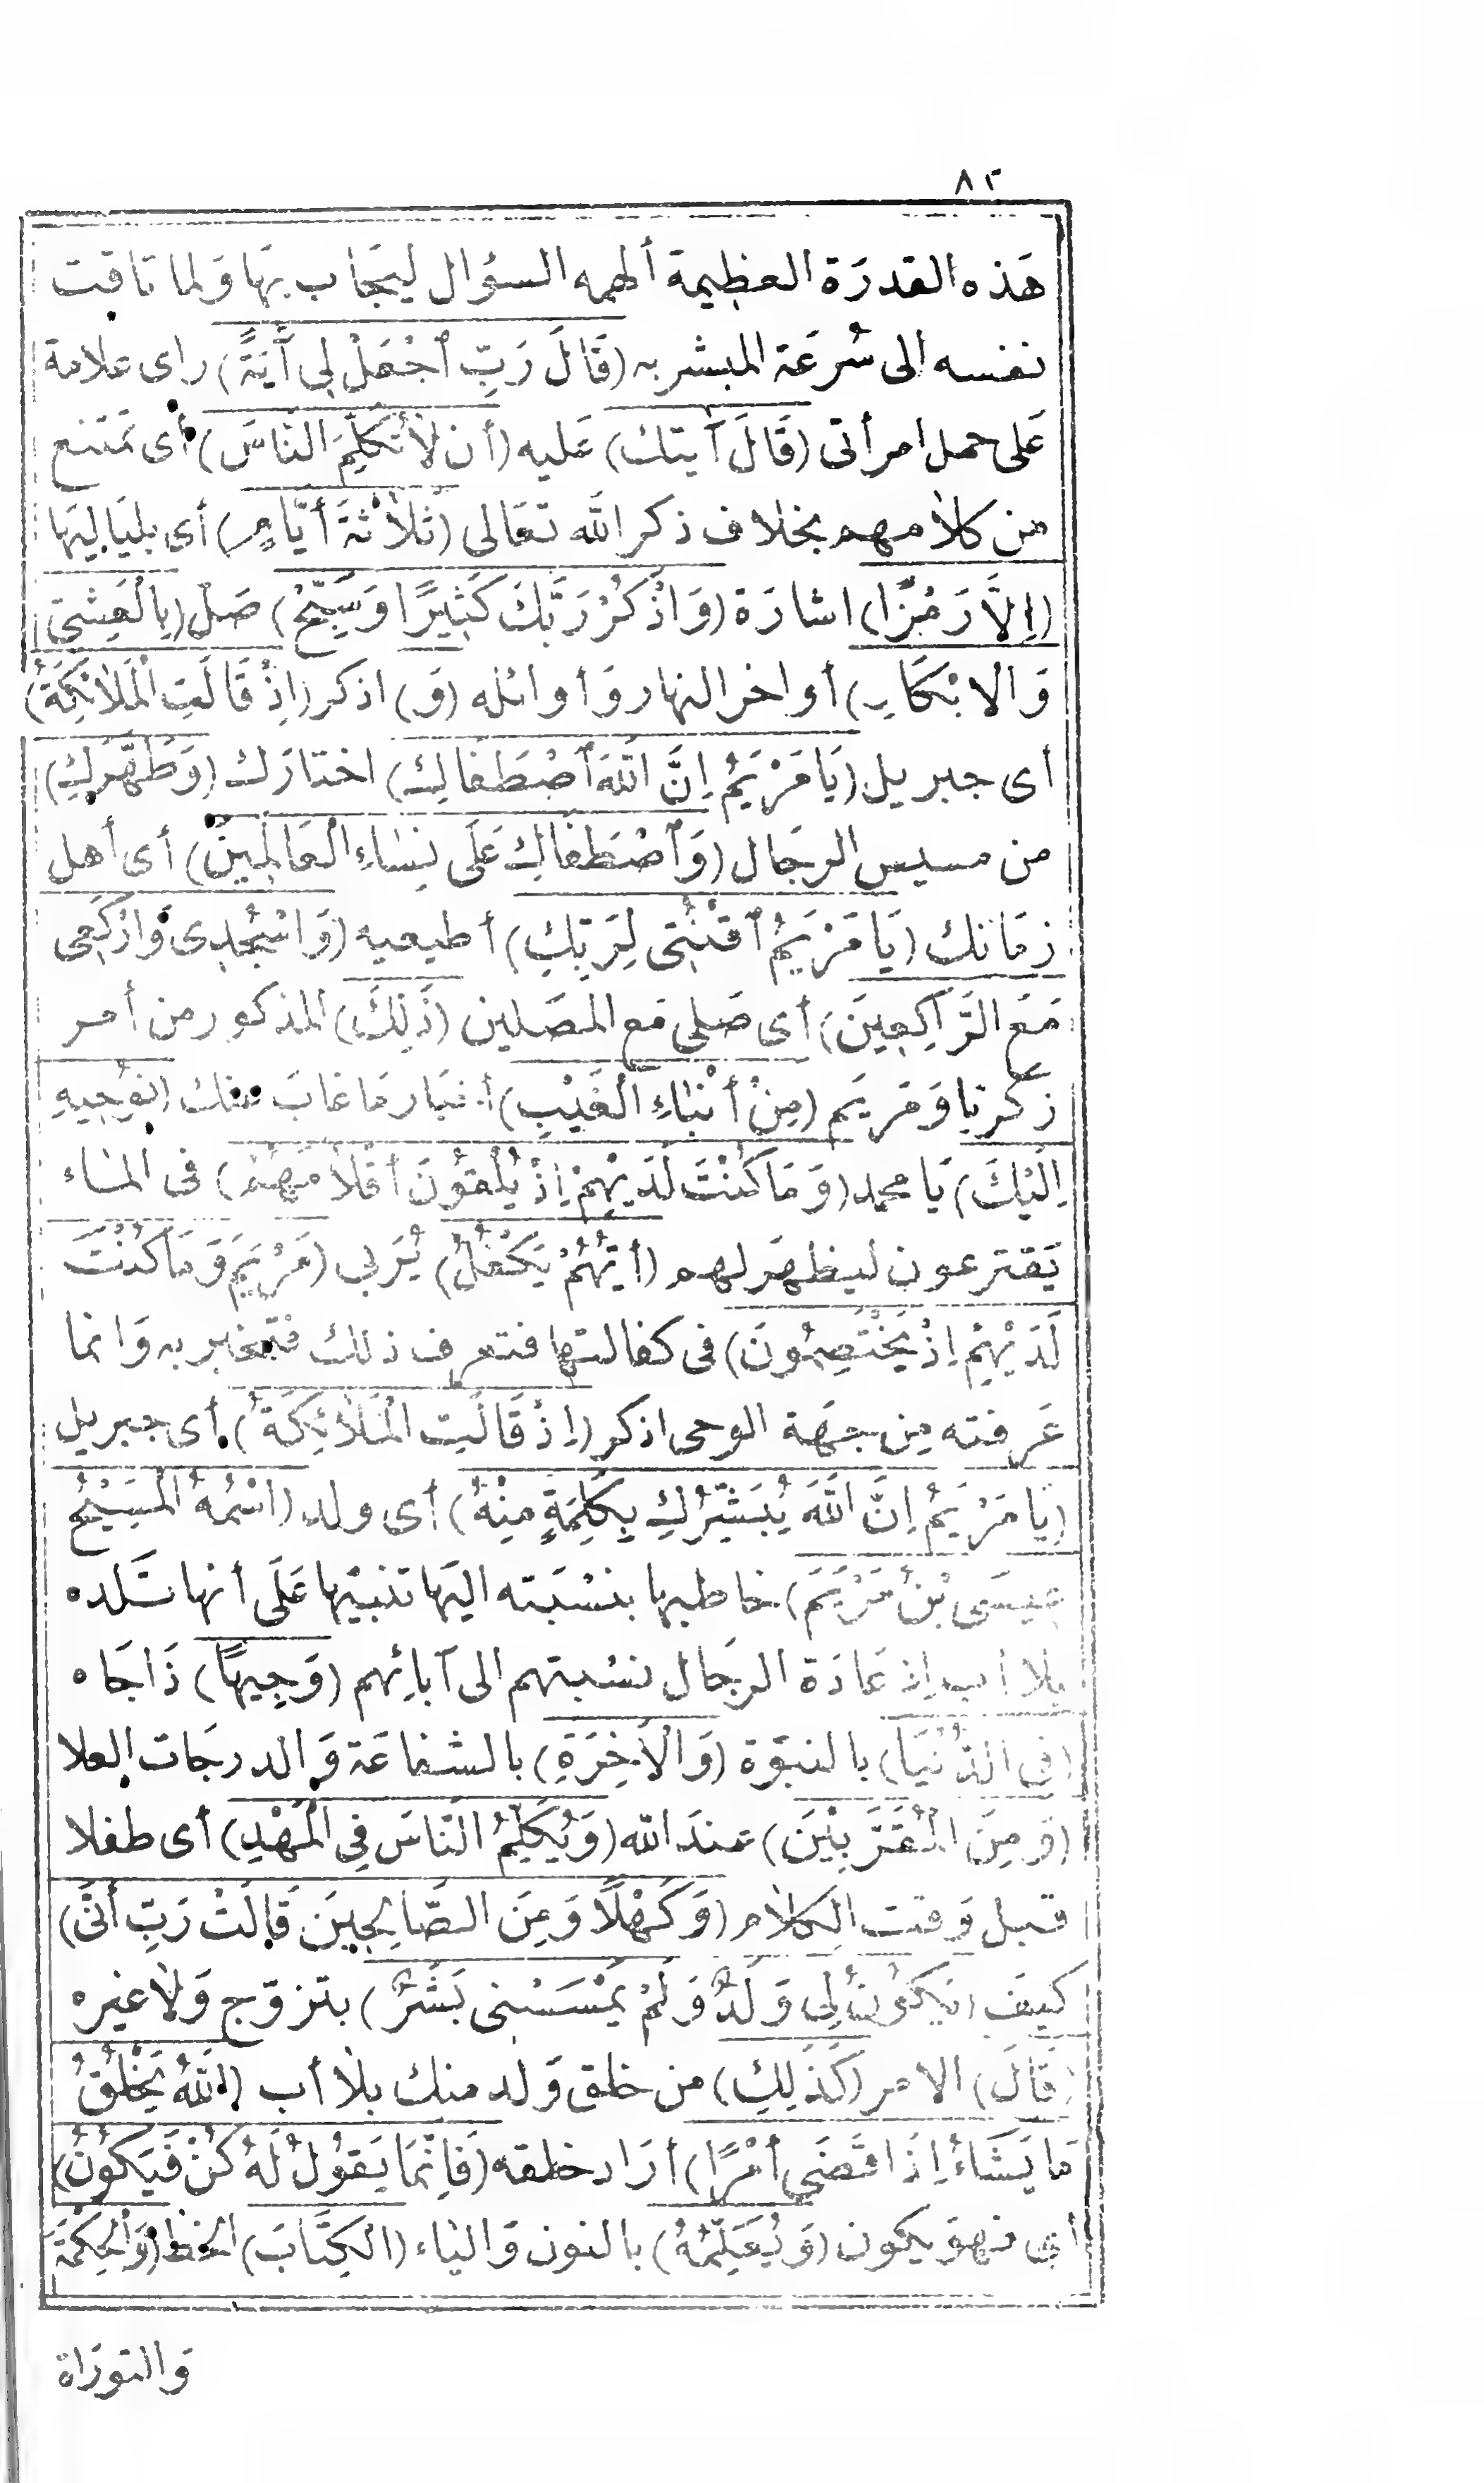 ٨٢
هَذه القدرَة العظيمة ألهمه السؤال ليجَاب بهَا وَلما تاقت
نفسه الى سُرعَة المبشر به (قَالَ رَبِّ ٱجْعَلْ لِي آيَةً) راى علامة
عَلى حمل امرأتى (قَالَ آيتك) عَليه (أن لاَ تُكَلِّمَ النَّاسَ) أى تمتنع
من كلامهم بخلاف ذكر الله تعَالى (ثَلاَثَةَ أيَّامٍ) أى بليَاليهَا
(اِلاَّ رَمْزًا) اشارَة (وَاذْكُرْ رَبَّكَ كَثِيرًا وَسَبِّحْ) صَلّ (بِالْعَشِىِّ
وَالابْكَارِ) أواخر النهار وَأوائله (وَ) اذكر (اِذْ قَالَتِ الْمَلاَئِكَةُ)
اى جبريل (يَا مَرْيَمُ اِنَّ اللهَ ٱصْطَفَاكِ) اختارَك (وَطَهَّرَكِ)
من مسيس الرجَال (وَٱصْطَفَاكِ عَلَى نِسَاءِ الْعَالَمِينَ) أى أهل
زمَانك (يَا مَرْيَمُ ٱقْنُتِى لِرَبِّكِ) أطيعيه (وَاسْجُدِى وَارْكَعِى
مَعَ الرَّاكِعِينَ) أى صَلى مَع المصَلين (ذَلِكَ) المذكور من أمر
زكريا وَمَريَم (مِنْ أَنْبَاءِ الْغَيْبِ) أخبَار مَا غابَ عنك (نُوحِيهِ
اِلَيْكَ) يَا محمد (وَمَا كُنْتَ لَدَيْهِمْ اِذْ يُلْقُونَ أقْلاَمَهُمْ) فى الماء
يَقترعون ليظهَر لهم (أيُّهُمْ يَكْفُلُ) يُرَبى (مَرْيَمَ وَمَا كُنْتَ
لَدَيْهِمْ اِذْ يَخْتَصِمُونَ) فى كفالتهَا فتعرف ذلك فتخبر به وَانما
عَرفته مِن جهَة الوحى اذكر (اِذْ قَالَتِ الْمَلاَئِكَةُ) أى جبريل
(يَا مَرْيَمُ اِنَّ اللَّهَ يُبَشِّرُكِ بِكَلِمَةٍ مِنْهُ) أى ولد (اسْمُهُ الْمَسِيْحُ
عِيسَى بْنُ مَرْيَمَ) خاطبها بنسْبَته اليهَا تنبيْها عَلَى أنها تَلده
بلا أب اِذ عَادَة الرجَال نسْبتهم الى آبائِهم (وَجِيهًا) ذَا جَاه
(فِى الدُّنْيَا) بالنبوَّة (وَالْاَخِرَةِ) بالشفاعَة وَالدرجَات العلا
(وَمِنَ الْمُقَرَّبِيْنَ) عندَ الله (وَيُكَلِّمُ النَّاسَ فِي الْمَهْدِ) أى طفلا
قبل وَقت الكلام (وَكَهْلاً وَمِنَ الصَّالِحِينَ قَالَتْ رَبِّ أَنَّى)
كيف (يَكُونُ لِي وَلَدٌ وَلَمْ يَمْسَسْنِى بَشَرٌ) بتزوّج وَلاَ غيره
(قَالَ) الامر (كَذَلِكِ) من خلق وَلد منك بلاَ أب (اللهُ يَخْلُقُ
مَا يَشَاءُ اِذَا قَضَى أَمْرًا) أرَاد خلقه (فَاِنَّمَا يَقُولُ لَهُ كُنْ فَيَكُونُ)
أى فهوَ يكون (وَنُعَلِّمُهُ) بالنون وَالياء (الْكِتَابَ) الخط (وَالْحِكْمَةَ
وَالتورَاة